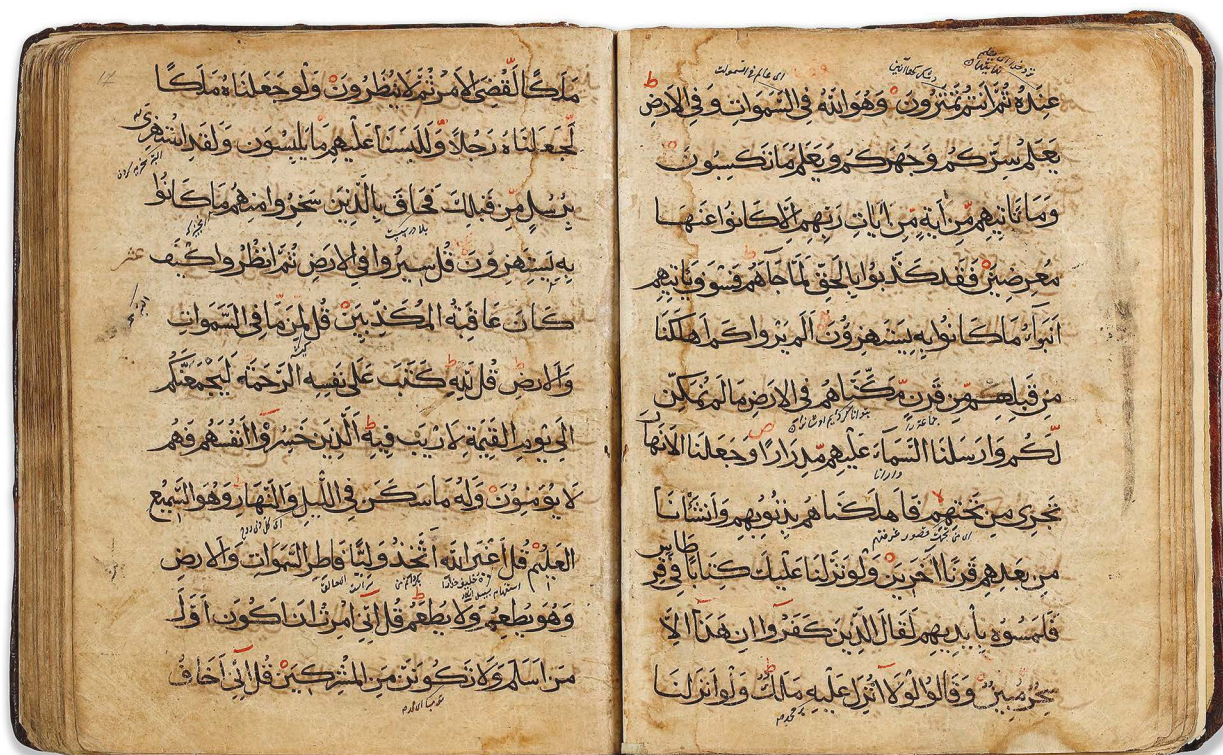 عِندَهُ ثُمَّ أَنتُم تَمتَرُونَ وَهُوَ اللهُ فِي السَّمٰوَاتِ وَفِي الأَرضِ
يَعلَمُ سِرَّكُم وَجَهرَكُم وَيَعلَمُ مَا تَكسِبُونَ
وَمَا تَأتِيهِم مِّن آيَةٍ مِّن آيَاتِ رَبِّهِم إِلَّا كَانُوا عَنهَا
مُعرِضِينَ فَقَد كَذَّبُوا بِالحَقِّ لَمَّا جَآءَهُم فَسَوفَ يَأتِيهِم
أَنبَآءُ مَا كَانُوا بِهِ يَستَهزِؤُنَ أَلَم يَرَوا كَم أَهلَكنَا
مِن قَبلِهِم مِّن قَرنٍ مَّكَّنَّاهُم فِي الأَرضِ مَا لَم نُمَكِّن
لَّكُم وَأَرسَلنَا السَّمَآءَ عَلَيهِم مِّدرَارًا وَجَعَلنَا الأَنهَارَ
تَجرِي مِن تَحتِهِم فَأَهلَكنَاهُم بِذُنُوبِهِم وَأَنشَأنَا
مِن بَعدِهِم قَرنًا آخَرِينَ وَلَو نَزَّلنَا عَلَيكَ كِتَابًا فِي قِرطَاسٍ
فَلَمَسُوهُ بِأَيدِيهِم لَقَالَ الَّذِينَ كَفَرُوا إِن هَذَا إِلَّا
سِحرٌ مُبِينٌ وَقَالُوا لَولَا أُنزِلَ عَلَيهِ مَلَكٌ وَلَو أَنزَلنَا
مَلَكًا لَّقُضِيَ الأَمرُ ثُمَّ لَا يُنظَرُونَ وَلَو جَعَلنَاهُ مَلَكًا
لَّجَعَلنَاهُ رَجُلًا وَّلَلَبَسنَا عَلَيهِم مَا يَلبِسُونَ وَلَقَدِ استُهزِئَ
بِرُسُلٍ مِّن قَبلِكَ فَحَاقَ بِالَّذِينَ سَخِرُوا مِنهُم مَا كَانُوا
بِهِ يَستَهزِؤُنَ قُل سِيرُوا فِي الأَرضِ ثُمَّ انظُرُوا كَيفَ
كَانَ عَاقِبَةُ المُكَذِّبِينَ قُل لِمَن مَّا فِي السَّمَوَاتِ
وَالأَرضِ قُل لِّلهِ كَتَبَ عَلَى نَفسِهِ الرَّحمَةَ لَيَجمَعَنَّكُم
إِلَى يَومِ القِيمَةِ لَا رَيبَ فِيهِ الَّذِينَ خَسِرُوا أَنفُسَهُم فَهُم
لَا يُؤمِنُونَ وَلَهُ مَا سَكَنَ فِي اللَّيلِ وَالنَّهَارِ وَهُوَ السَّمِيعُ
العَلِيمُ قُل أَغَيرَ اللهِ أَتَّخِذُ وَلِيًّا فَاطِرِ السَّمَوَاتِ وَالأَرضِ
وَهُوَ يُطعِمُ وَلَا يُطعَمُ قُل إِنِّي أُمِرتُ أَن أَكُونَ أَوَّلَ
مَن أَسلَمَ وَلَا تَكُونَنَّ مِنَ المُشرِكِينَ قُل إِنِّي أَخَافُ